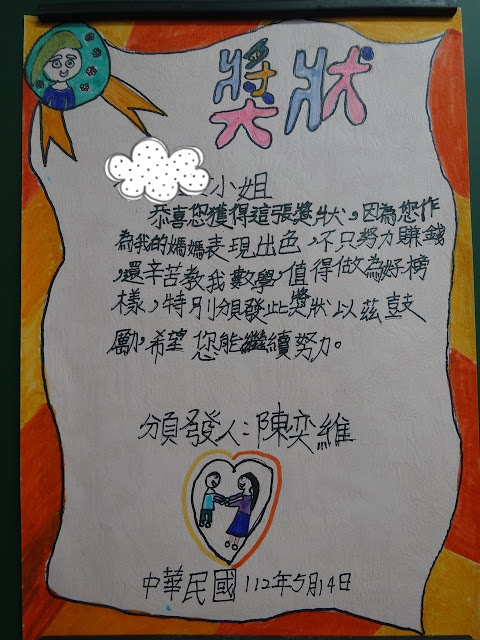 獎狀
小姐
恭喜您獲得這張獎狀，因為您作
為我的媽媽表現出色，不只努力賺錢
，還辛苦教我數學，值得做為好榜
樣，特別頒發此獎狀以茲鼓
勵，希望您能繼續努力。
頒發人：陳奕維
中華民國112年5月14日